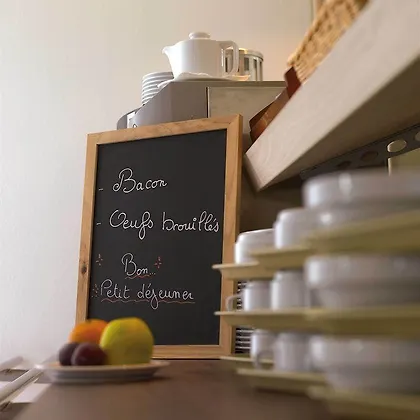 - Bacon
- Oeufs brouillés
Bon...
Petit déjeuner